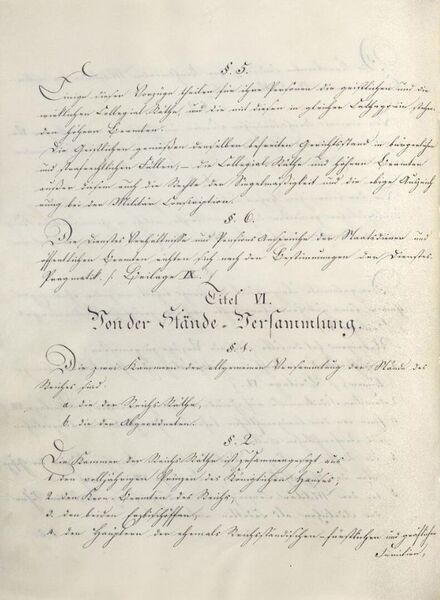 §. 5.
Einige dieser Vorzüge theilen für ihre Personen die geistlichen und die
wirklichen Collegial Räthe, und die mit diesen in gleicher Cathegorie stehen-
den höhern Beamten.
Die Geistlichen genießen denselben befreiten Gerichtsstand in bürgerlichen
und strafrechtlichen Fällen; – die Collegial Räthe und höhern Beamten
außer diesem auch die Rechte der Siegelmäßigkeit und die obige Auszeich-
nung bei der Militär Conscription.
§. 6.
Die Dienstes Verhältnisse und Pensions Ansprüche der Staatsdiener und
öffentlichen Beamten richten sich nach den Bestimmungen der Dienstes-
Pragmatik. /: Beilage IX. :/
Titel VI.
Von der Stände-Versammlung.
§. 1.
Die zwei Kammern der allgemeinen Versammlung der Stände des
Reiches sind
a, die der Reichs Räthe,
b, die der Abgeordneten.
§. 2
Die Kammer der Reichs Räthe ist zusammengesetzt aus
1. den volljährigen Prinzen des Königlichen Hauses;
2. den Kron Beamten des Reichs;
3. den beiden Erzbischöffen;
4. den Häuptern der ehemals Reichsständischen-fürstlichen und gräflichen
Familien,